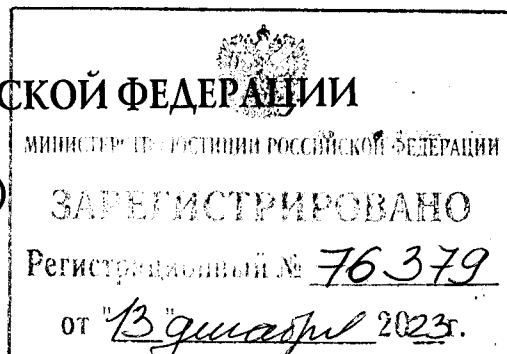 СКОЙ ФЕДЕРАЦИИ
МИНИСТЕРСТВО ЮСТИЦИИ РОССИЙСКОЙ ФЕДЕРАЦИИ
)
ЗАРЕГИСТРИРОВАНО
Регистрационный № 76379
от "13" декабря 2023г.